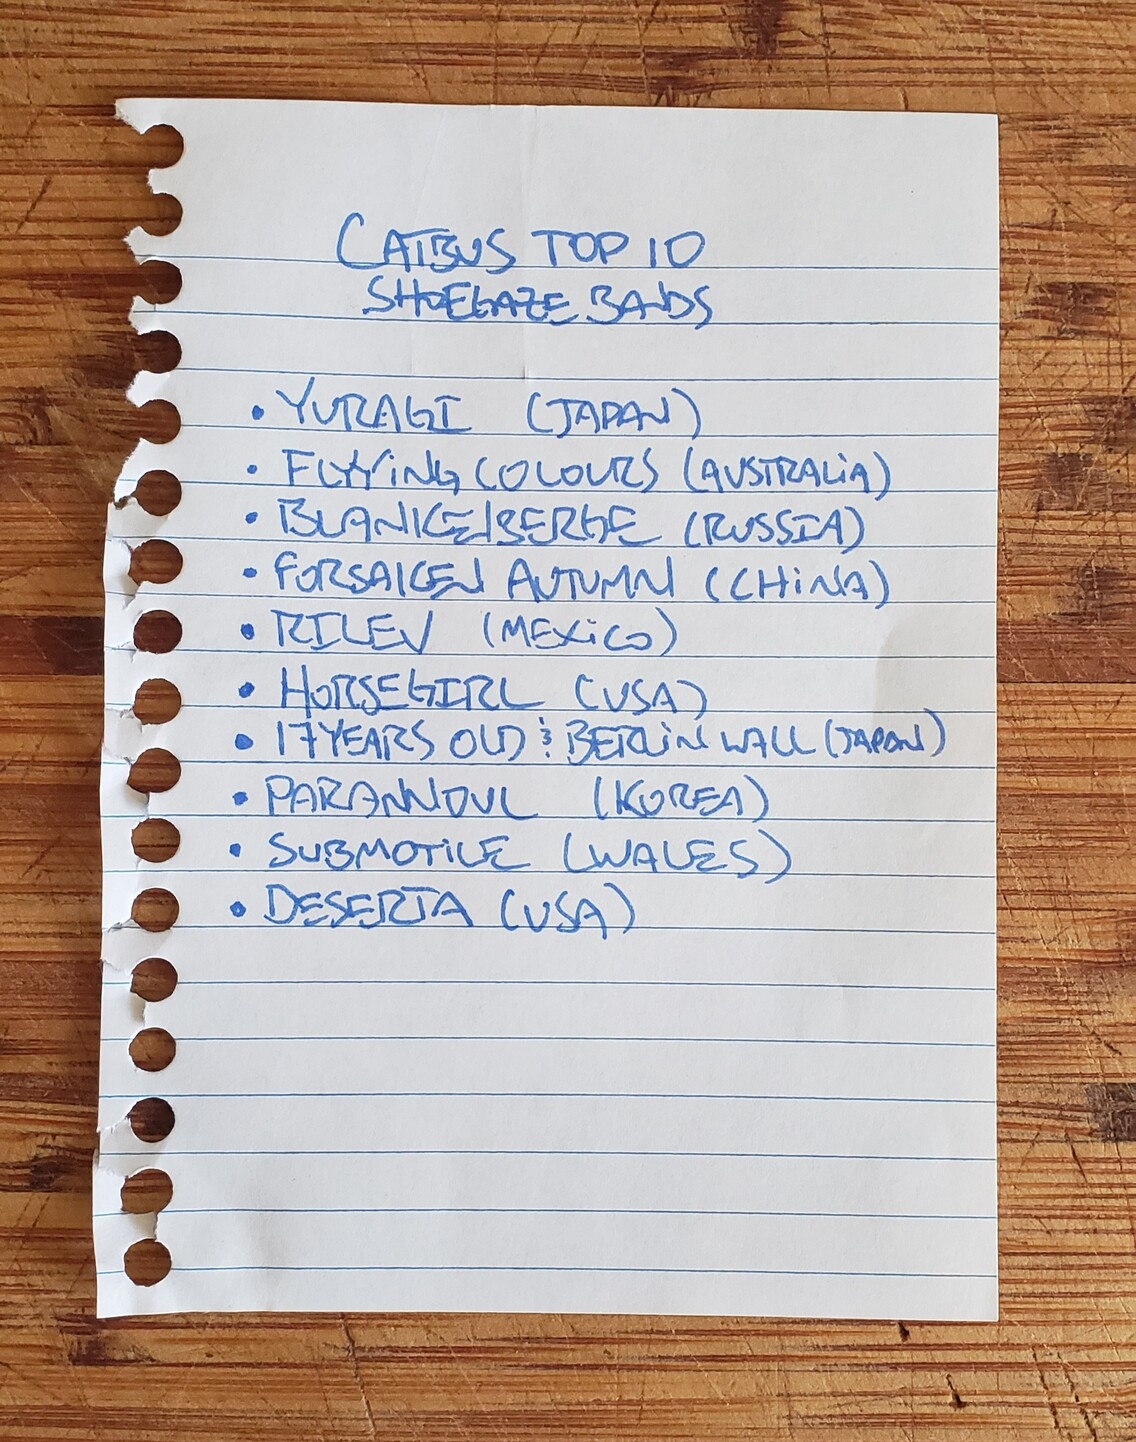 CATBUS TOP 10
SHOEGAZE BANDS
• YURAGI (JAPAN)
• FLYYING COLOURS (AUSTRALIA)
• BLANKENBERGE (RUSSIA)
• FORSAKEN AUTUMN (CHINA)
• RILEV (MEXICO)
• HORSEGIRL (USA)
• 17 YEARS OLD & BERLIN WALL (JAPAN)
• PARANNOUL (KOREA)
• SUBMOTILE (WALES)
• DESERTA (USA)